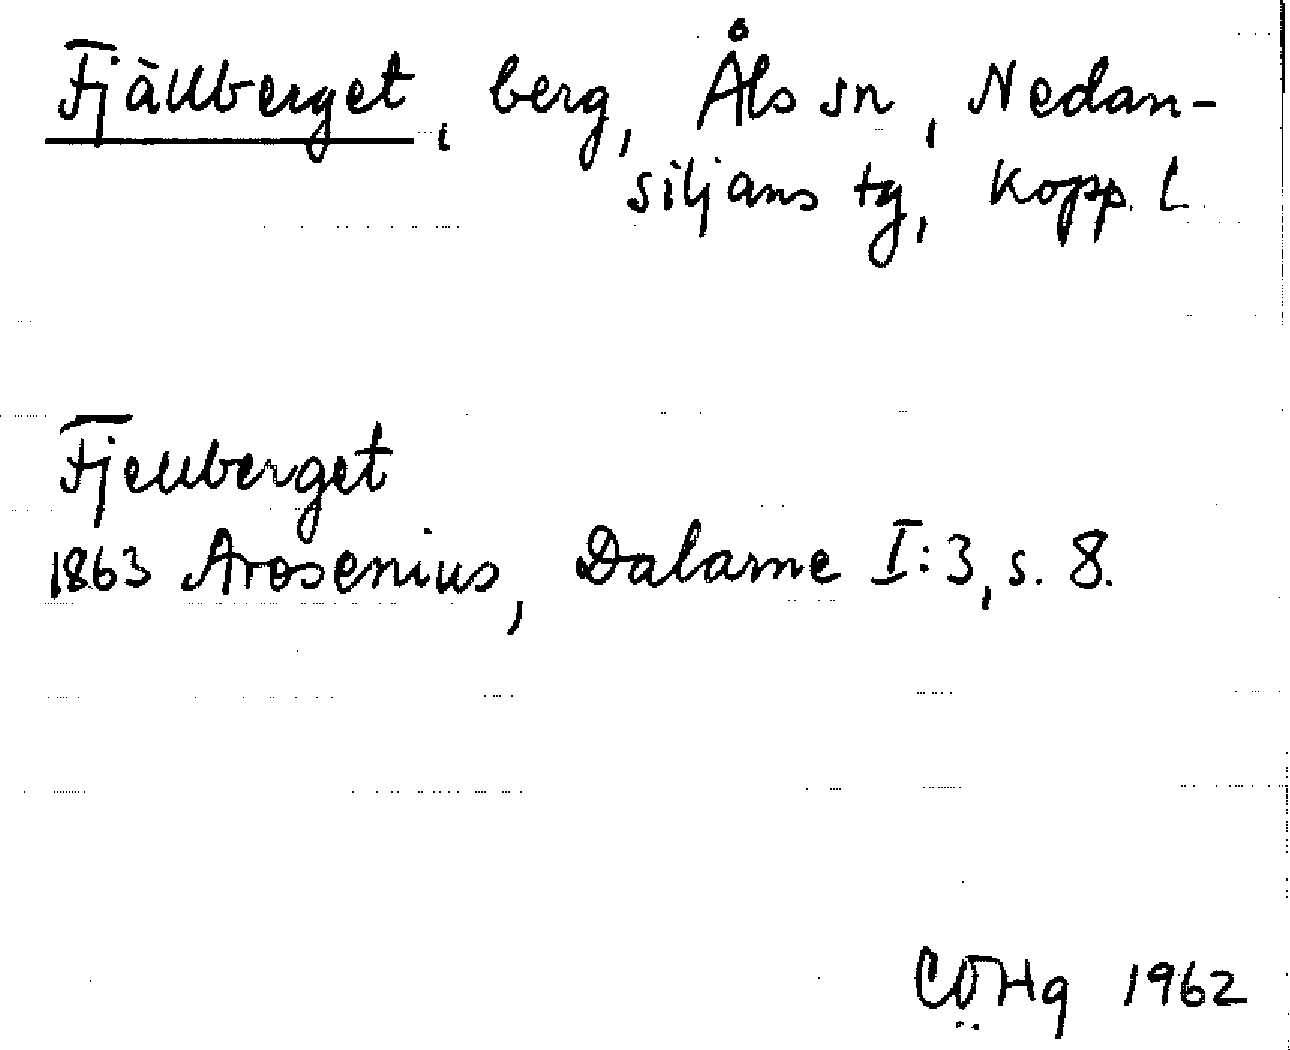 Fjällberget, berg, Åls sn, Nedan-
siljans tg, Kopp. l.
Fjellberget
1863 Arosenius, Dalarne I:3, s. 8.
1962